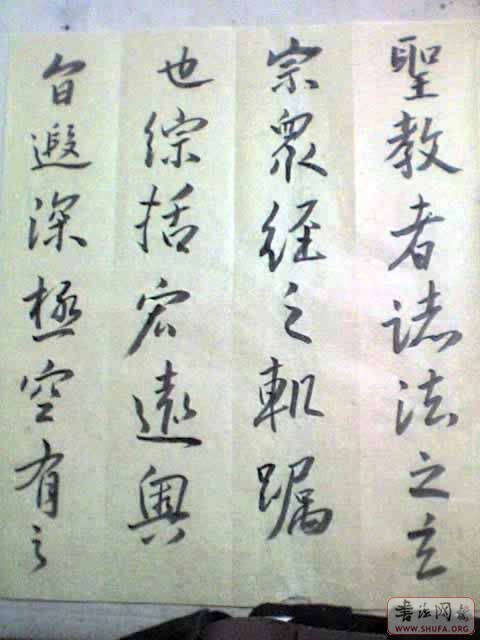 聖教者諸法之玄
宗衆經之軌躅
也綜括宏遠奥
旨遐深極空有之
書法网
WWW.SHUFA.ORG